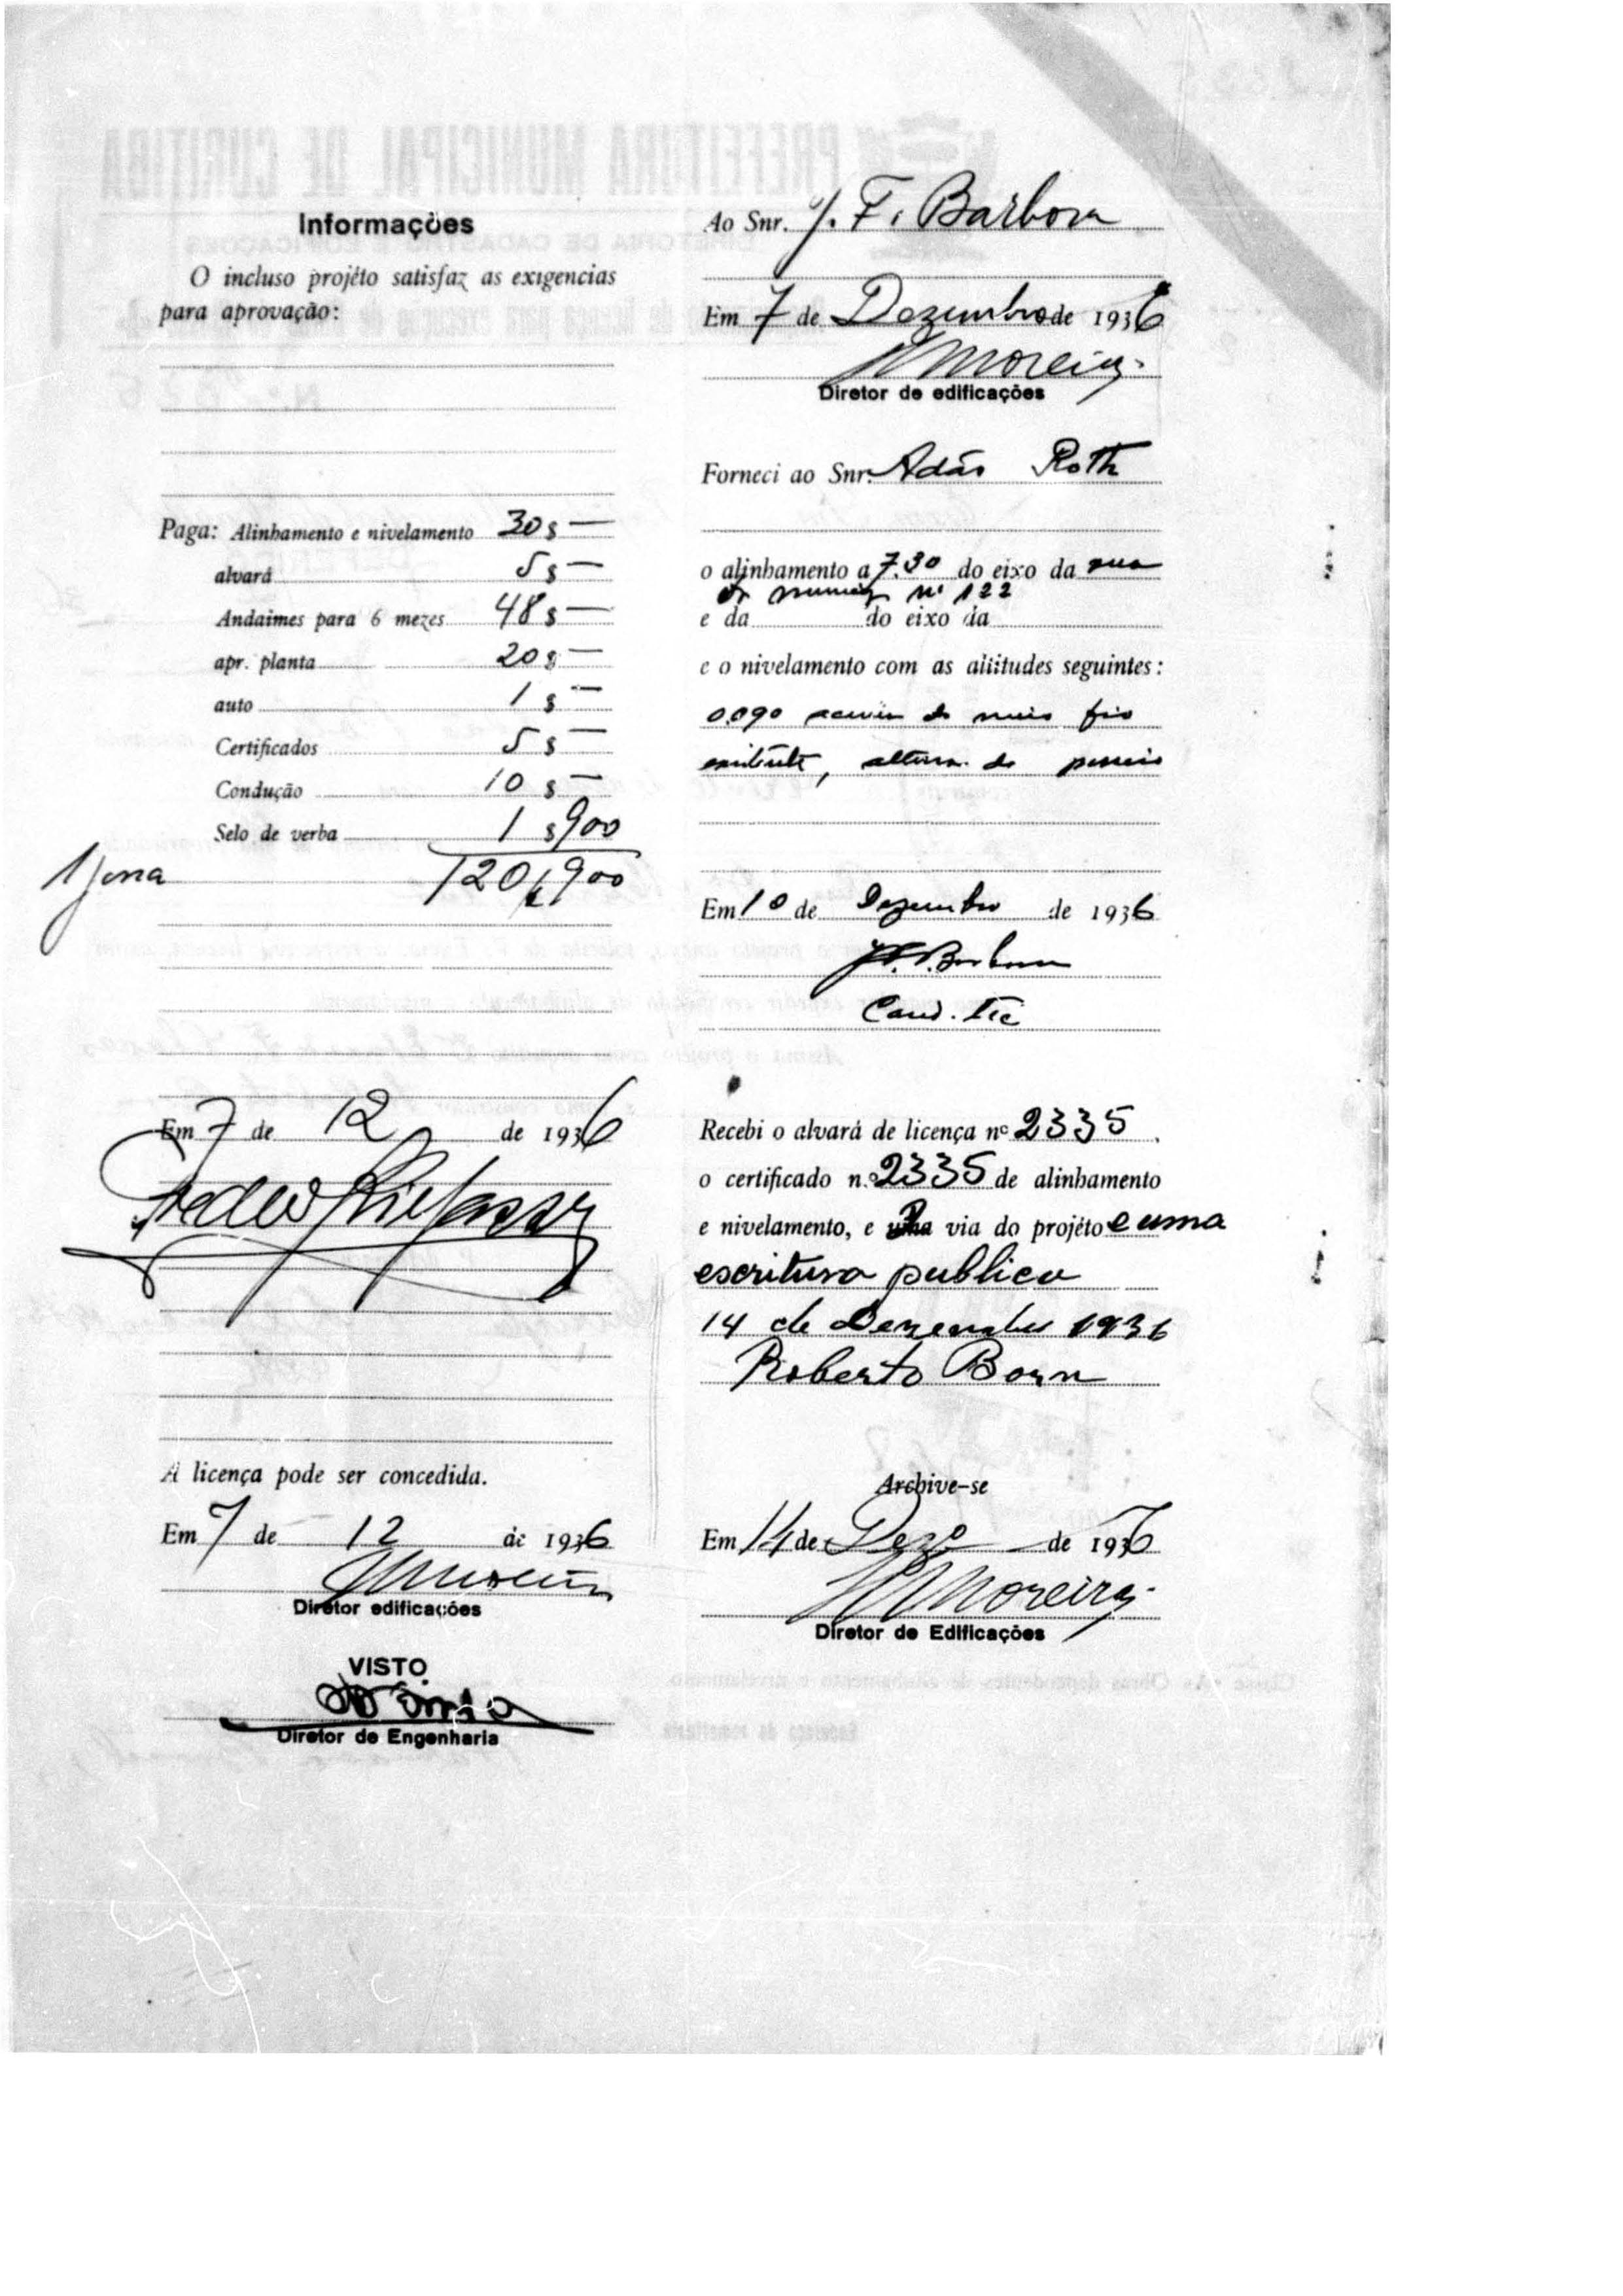 Informações
O incluso projéto satisfaz as exigencias
para aprovação:
Paga: Alinhamento e nivelamento 30$—
alvará 5$—
Andaimes para 6 mezes 48$—
apr. planta 20$—
auto 1$—
Certificados 5$—
Condução 10$—
Selo de verba 1$900
120,900
Em 7 de 12 de 1936
A licença pode ser concedida.
Em 7 de 12 de 1936
Diretor edificações
VISTO
Diretor de Engenharia
Ao Snr. J. F. Barbosa
Em 7 de Dezembro de 1936
Moreira
Diretor de edificações
Forneci ao Snr. Adão Roth
o alinhamento a 7.30 do eixo da rua
nº 122
e da do eixo da
e o nivelamento com as altitudes seguintes:
0.090 do meio fio
existente, altura do passeio
Em 10 de Dezembro de 1936
J. F. Barbosa
Cand. Tec
Recebi o alvará de licença nº 2335.
o certificado n.º 2335 de alinhamento
e nivelamento, e via do projéto e uma
escritura publica
14 de Dezembro 1936
Roberto Born
Archive-se
Em 14 de Dezº de 1936
Moreira
Diretor de Edificações
PREFEITURA MUNICIPAL DE CURITIBA